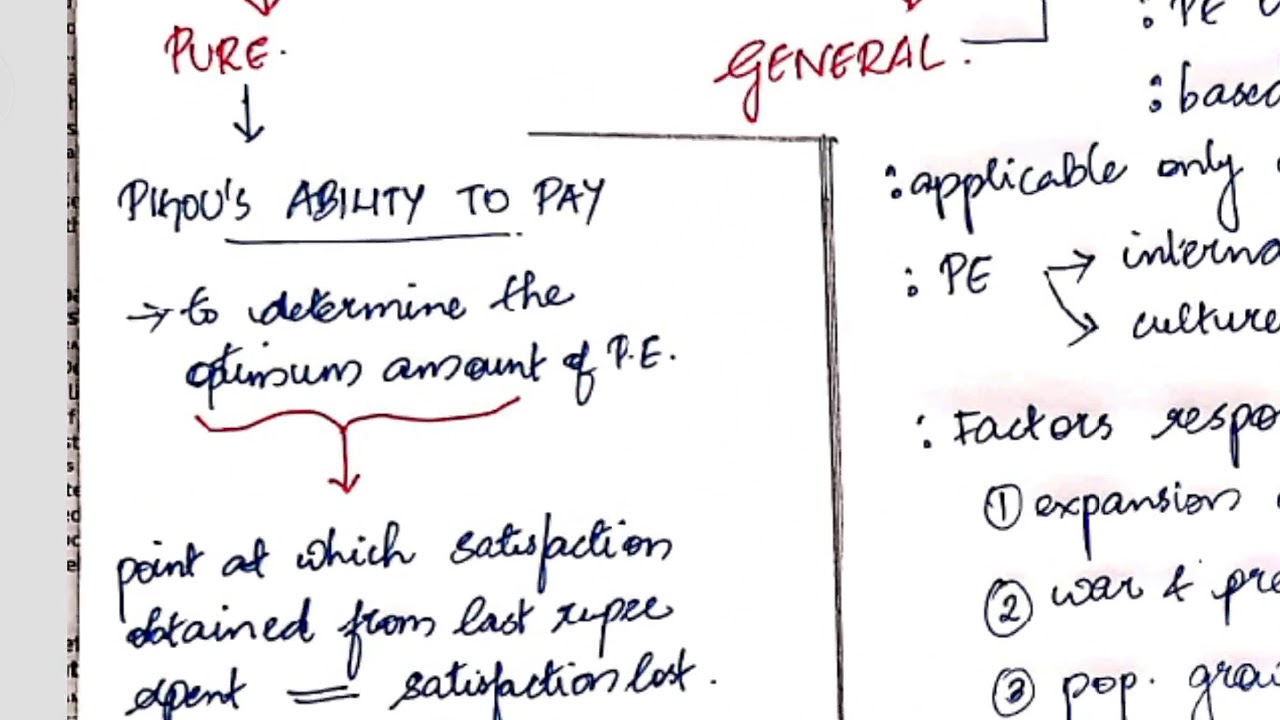 PURE.
PIGOU'S ABILITY TO PAY
→ to determine the
optimum amount of P.E.
point at which satisfaction
obtained from last rupee
spent = satisfaction lost.
GENERAL.
: PE
: based
: applicable only
: PE → interna
culture
: Factors respo
① expansion
② war & pre
③ pop. grow